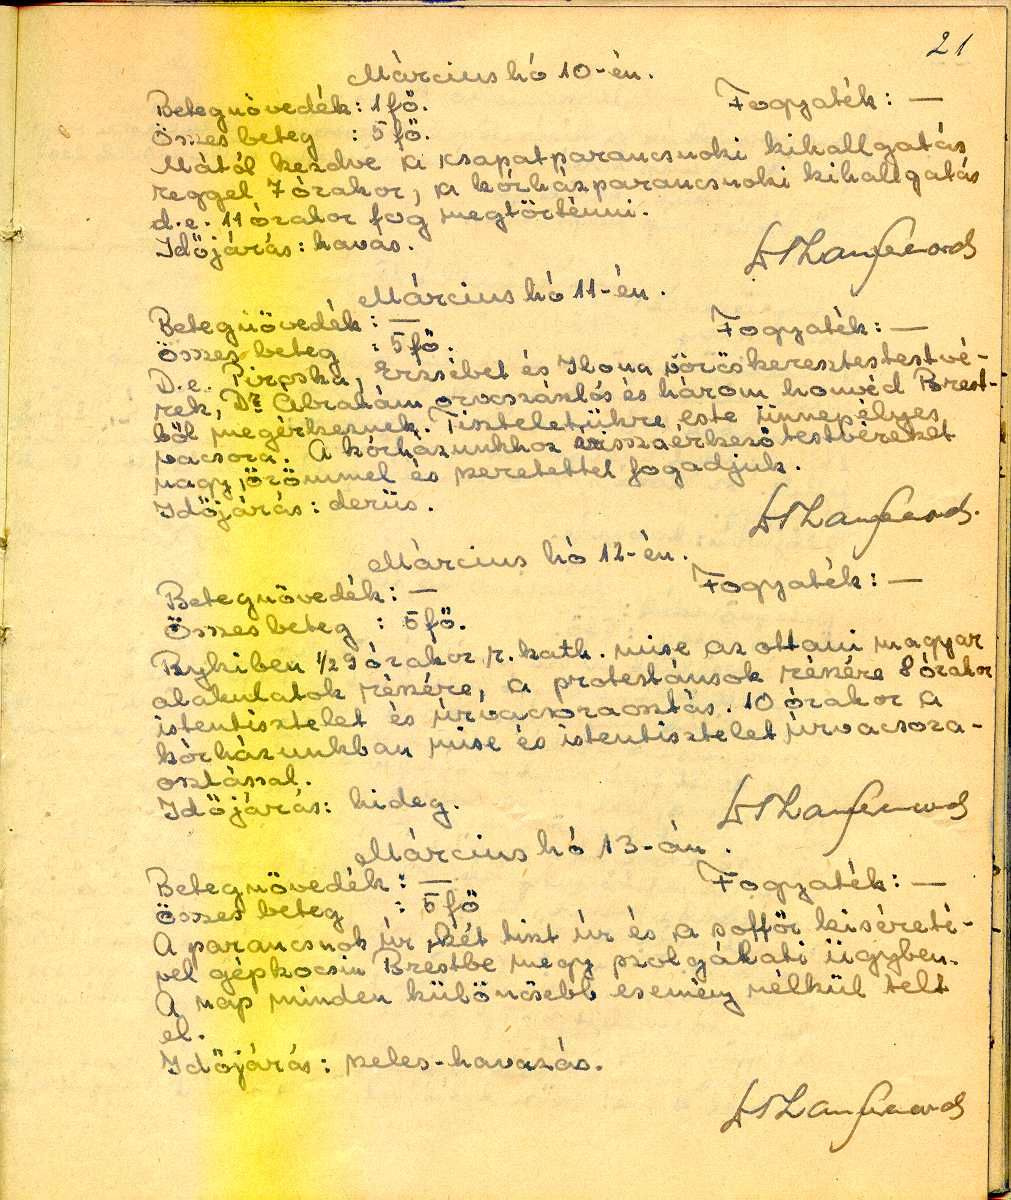 21
Március hó 10-én.
Betegnövedék: 1 fő. Fogyaték: —
Összes beteg : 5 fő.
Mától kezdve a csapatparancsnoki kihallgatás
reggel 7 órakor, a kórházparancsnoki kihallgatás
d.e. 11 órakor fog megtörténni.
Időjárás: havas.
Március hó 11-én.
Betegnövedék: — Fogyaték: —
Összes beteg : 5 fő.
D.e. Piroska, Erzsébet és Ilona vöröskeresztes testvé-
rek, Dr Ábrahám orvoszászlós és három honvéd Brest-
ből megérkeznek. Tiszteletükre este ünnepélyes
vacsora. A kórházunkhoz visszaérkező testvéreket
nagy örömmel és szeretettel fogadjuk.
Időjárás: derüs.
Március hó 12-én.
Betegnövedék: — Fogyaték: —
Összes beteg : 5 fő.
Rykiben 1/2 9 órakor r. kath. mise az ottani magyar
alakulatok részére, a protestánsok részére 8 órakor
istentisztelet és úrvacsoraosztás. 10 órakor a
kórházunkban mise és istentisztelet úrvacsora-
osztással.
Időjárás: hideg.
Március hó 13-án.
Betegnövedék: — Fogyaték: —
Összes beteg : 5 fő
A parancsnok úr, két tiszt úr és a soffőr kiséreté-
vel gépkocsin Brestbe megy szolgálati ügyben.
A nap minden különösebb esemény nélkül telt
el.
Időjárás: szeles-havazás.